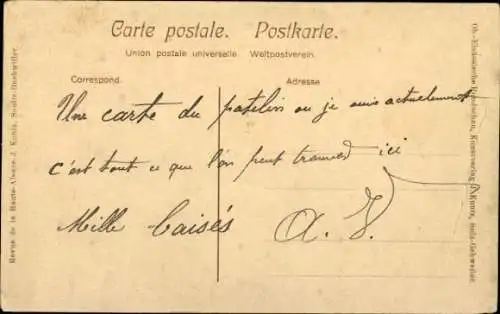 Carte postale. Postkarte.
Union postale universelle. Weltpostverein.
Correspond. Adresse
Une carte du patelin ou je suis actuellement
c'est tout ce que l'on peut trouver ici
Mille baisés A. J.
Revue de la Haute-Alsace J. Kuntz, Soultz-Guebwiller.
Ob.-Elsässische Rundschau, Kunstverlag J. Kuntz, Sulz-Gebweiler.